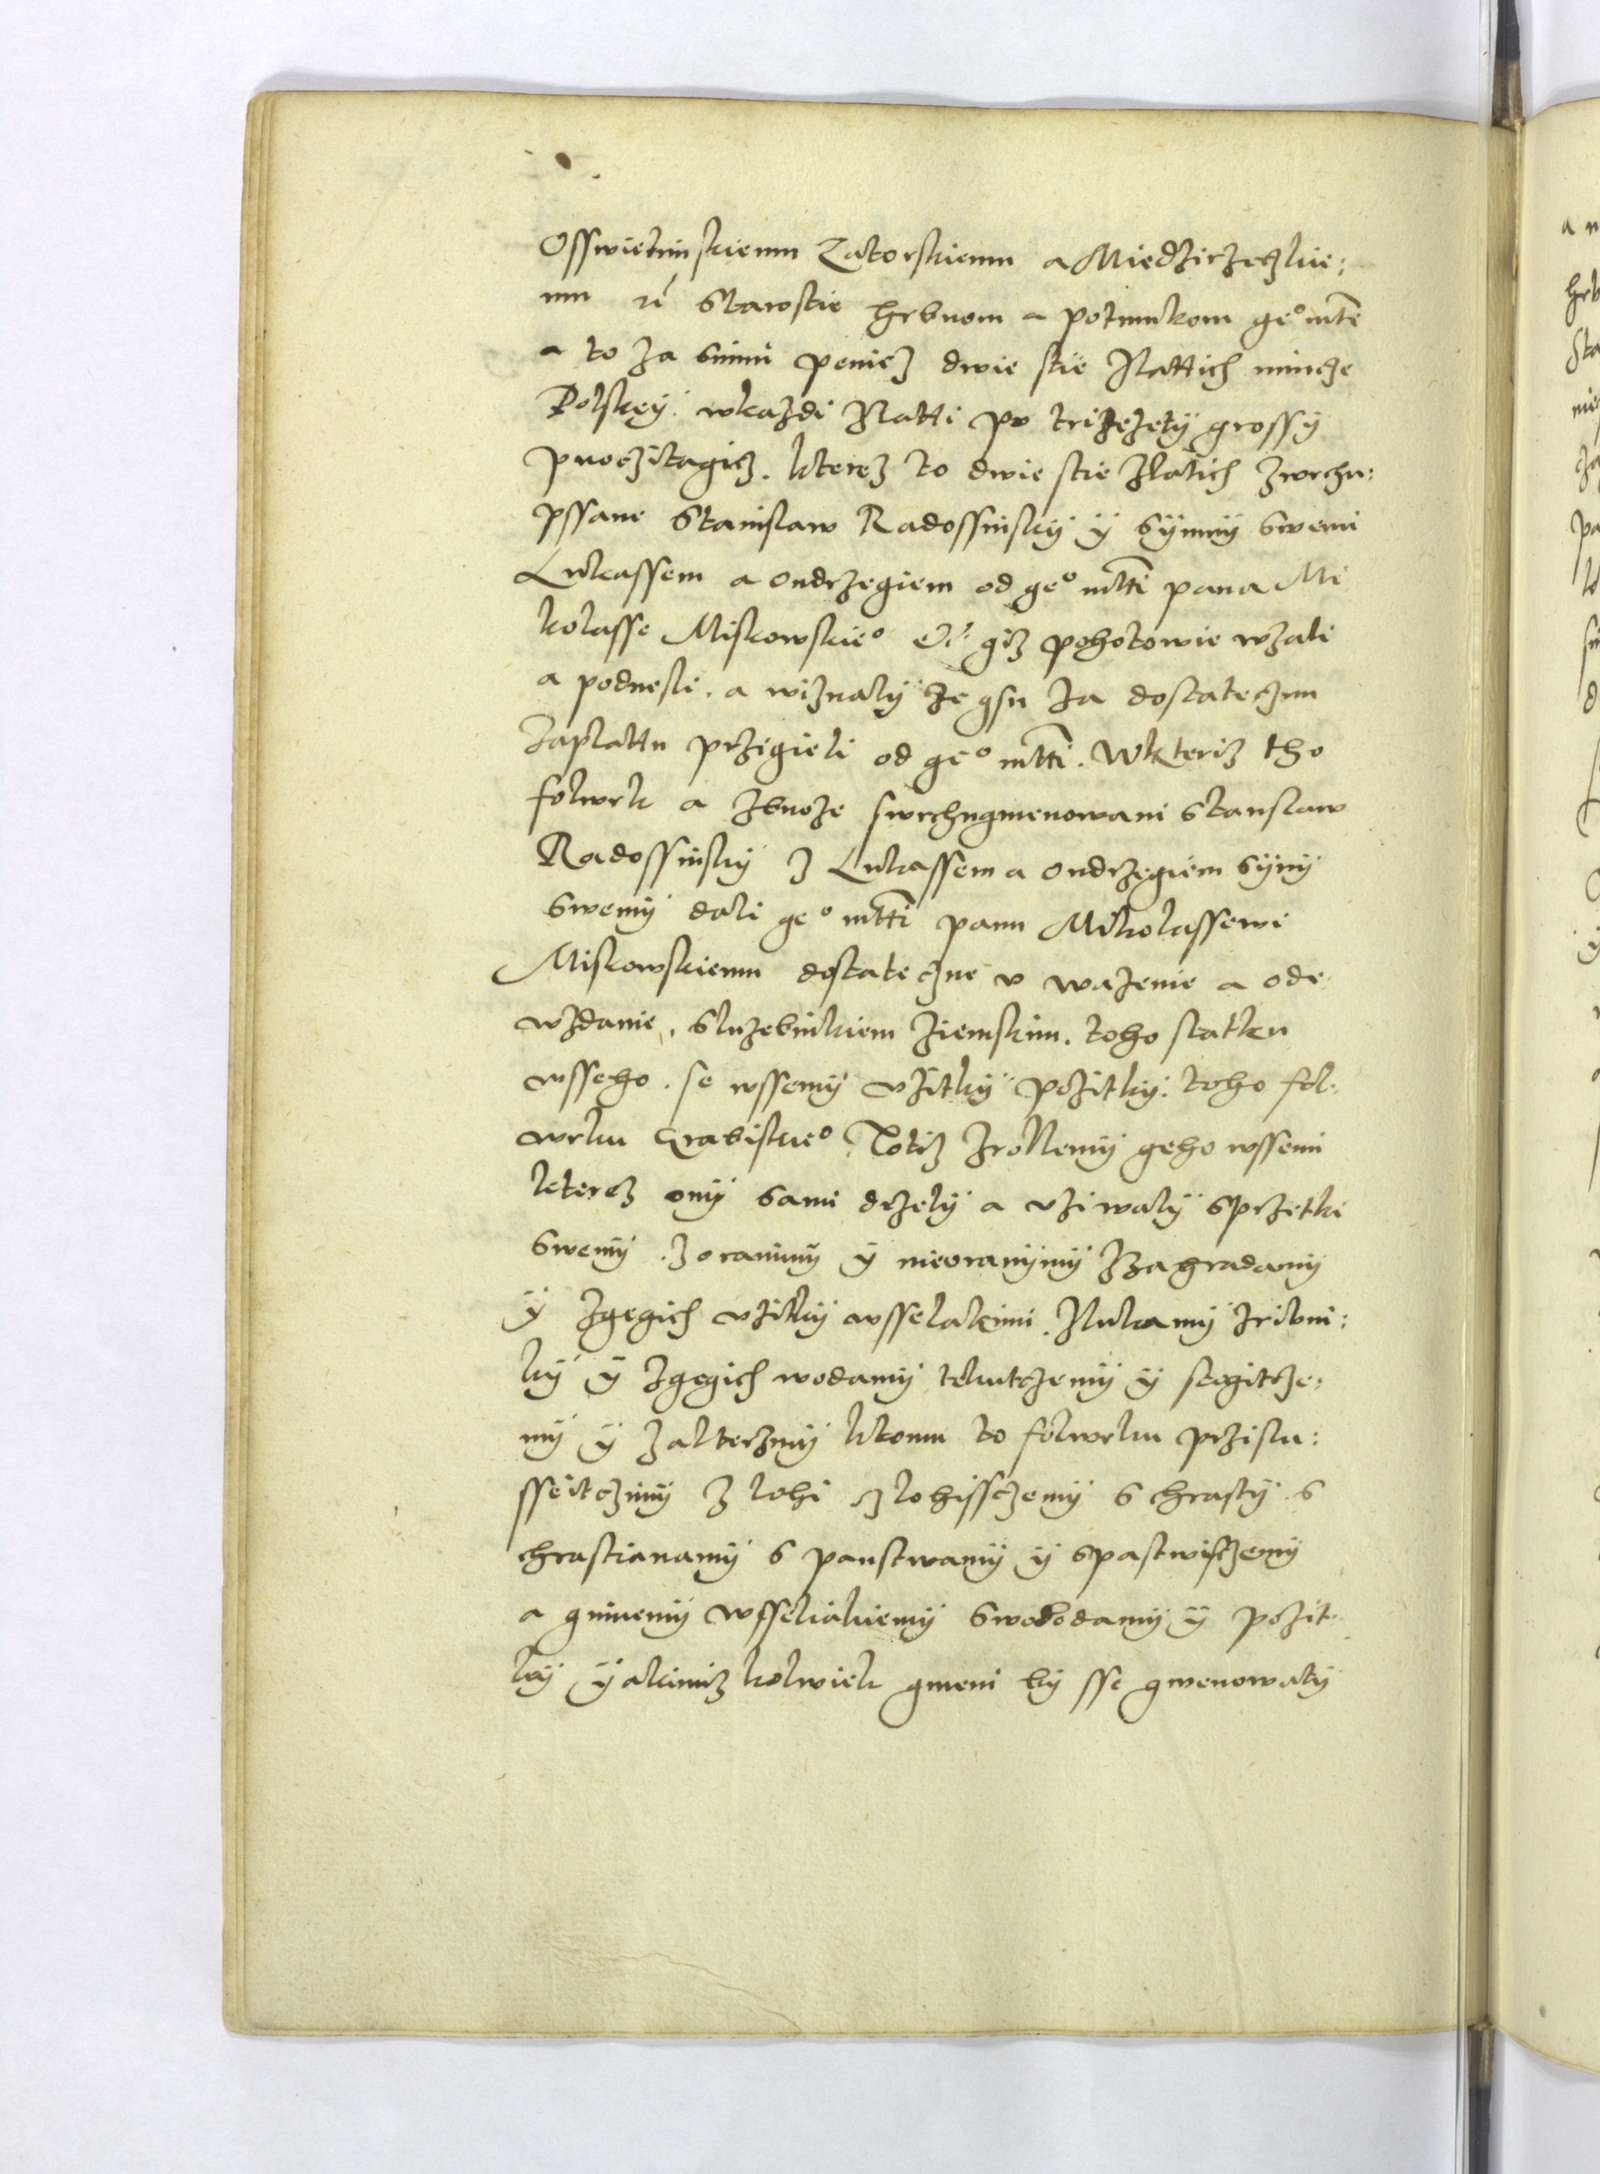 Osswietimskiemu Zatorskiemu a Miedzirzeczkie:
mu etc Starostie hrbuom a potumkom ge° mti
a to za summu peniez dwie stie zlattich mincze
Polskey. wkazdi zlatti po trizczety grossy
poczitagicz. kterez to dwie stie zlatich zwrchu:
pssane Stanislaw Radossinsky y synmy swemi
Lukassem a Ondrzegiem od ge° mltti pana Mi
kolasse Miskowskie° etc giz pohotowie wzali
a podnesli. a wiznaly ze gsu za dostateczmu
zaplattu przigieli od ge° mltti. Wkteriz tho
folwrk a zboze swrchugmenowani Stanslaw
Radossinsky z Lukassem a Ondrzegiem syny
swemy dali ge° mltti panu Mikolassewi
Miskowskiemu dostateczne v wazenie a ode
wzdanie, sluzebnikiem ziemskim. toho statku
wsseho. se wssemy vzitky pozitky. toho fol:
wrku Grabiskie° Totiz zrollemy geho wssemi
kterez ony sami drzely a vziwaly sprzetki
swemy. zoranimy y nieoranymy zzagradamy
y zgegich vzitky wsselakimi. zlukamy zribni:
ky y zgegich wodamy tekutczemy y stogitcze:
my y zalterzmy ktomu to folwrku przislu:
sseitczimy z lohi zlohissczemy s chrasty s
chrastianamy s panstwamy y spastwisczemy
a ginemy wsseliakiemy swobodamy y pozit
ky yakimiz kolwiek gmeni by sse gmenowaly